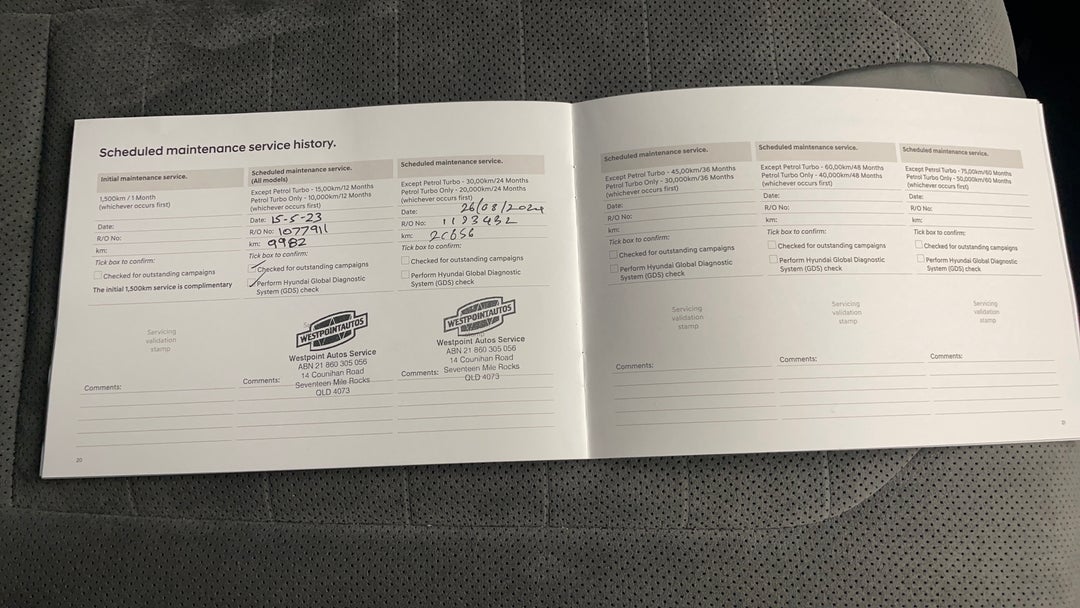 Scheduled maintenance service history.
Initial maintenance service.
1,500km / 1 Month
(whichever occurs first)
Date:
R/O No:
km:
Tick box to confirm:
Checked for outstanding campaigns
The initial 1,500km service is complimentary
Servicing
validation
stamp
Comments:
Scheduled maintenance service.
(All models)
Except Petrol Turbo - 15,00km/12 Months
Petrol Turbo Only - 10,000km/12 Months
(whichever occurs first)
Date: 15-5-23
R/O No: 1077911
km: 9982
Tick box to confirm:
Checked for outstanding campaigns
Perform Hyundai Global Diagnostic
System (GDS) check
WESTPOINTAUTOS
Westpoint Autos Service
ABN 21 860 305 056
14 Counihan Road
Seventeen Mile Rocks
QLD 4073
Comments:
Scheduled maintenance service.
Except Petrol Turbo - 30,00km/24 Months
Petrol Turbo Only - 20,000km/24 Months
(whichever occurs first)
Date: 26/08/2024
R/O No: 1193432
km:
Tick box to confirm:
Checked for outstanding campaigns
Perform Hyundai Global Diagnostic
System (GDS) check
WESTPOINTAUTOS
Westpoint Autos Service
ABN 21 860 305 056
14 Counihan Road
Seventeen Mile Rocks
QLD 4073
Comments:
20
Scheduled maintenance service.
Except Petrol Turbo - 45,00km/36 Months
Petrol Turbo Only - 30,000km/36 Months
(whichever occurs first)
Date:
R/O No:
km:
Tick box to confirm:
Checked for outstanding campaigns
Perform Hyundai Global Diagnostic
System (GDS) check
Servicing
validation
stamp
Comments:
Scheduled maintenance service.
Except Petrol Turbo - 60,00km/48 Months
Petrol Turbo Only - 40,000km/48 Months
(whichever occurs first)
Date:
R/O No:
km:
Tick box to confirm:
Checked for outstanding campaigns
Perform Hyundai Global Diagnostic
System (GDS) check
Servicing
validation
stamp
Comments:
Scheduled maintenance service.
Except Petrol Turbo - 75,00km/60 Months
Petrol Turbo Only - 50,000km/60 Months
(whichever occurs first)
Date:
R/O No:
km:
Tick box to confirm:
Checked for outstanding campaigns
Perform Hyundai Global Diagnostic
System (GDS) check
Servicing
validation
stamp
Comments: